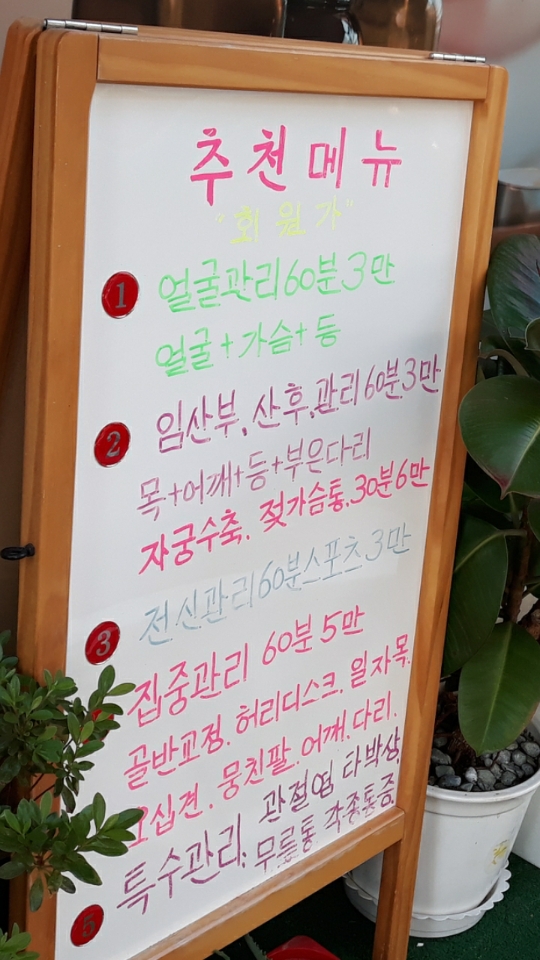 추천메뉴
"회원가"
1 얼굴관리60분3만
얼굴+가슴+등
2 임산부, 산후,관리60분3만
목+어깨+등+부은다리
자궁수축. 젖가슴통.30분6만
3 전신관리60분스포츠3만
집중관리 60분5만
골반교정. 허리디스크. 일자목.
오십견. 뭉친팔. 어깨.다리.
관절염 타박상.
5 특수관리: 무릎통 각종통증.